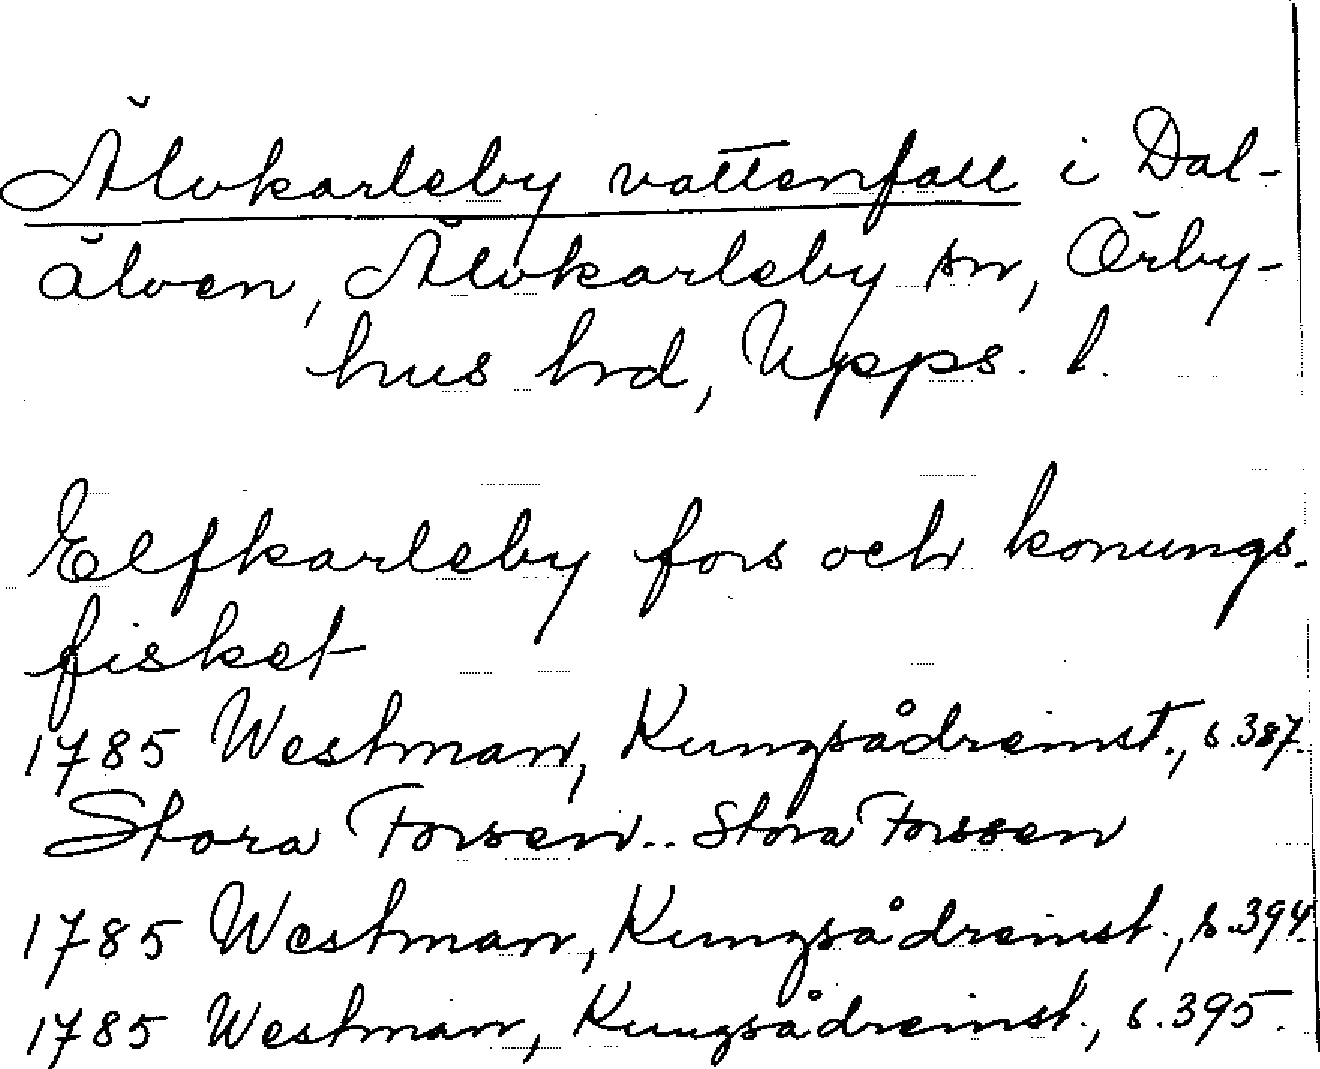 Älvkarleby vattenfall i Dal-
älven, Älvkarleby sn, Örby-
hus hrd, Upps. l.
Elfkarleby fors och konungs-
fisket
1785 Westman, Kungsådreinst., s. 387.
Stora Forsen.. Stora Forssen
1785 Westman, Kungsådreinst., s. 394.
1785 Westman, Kungsådreinst., s. 395.